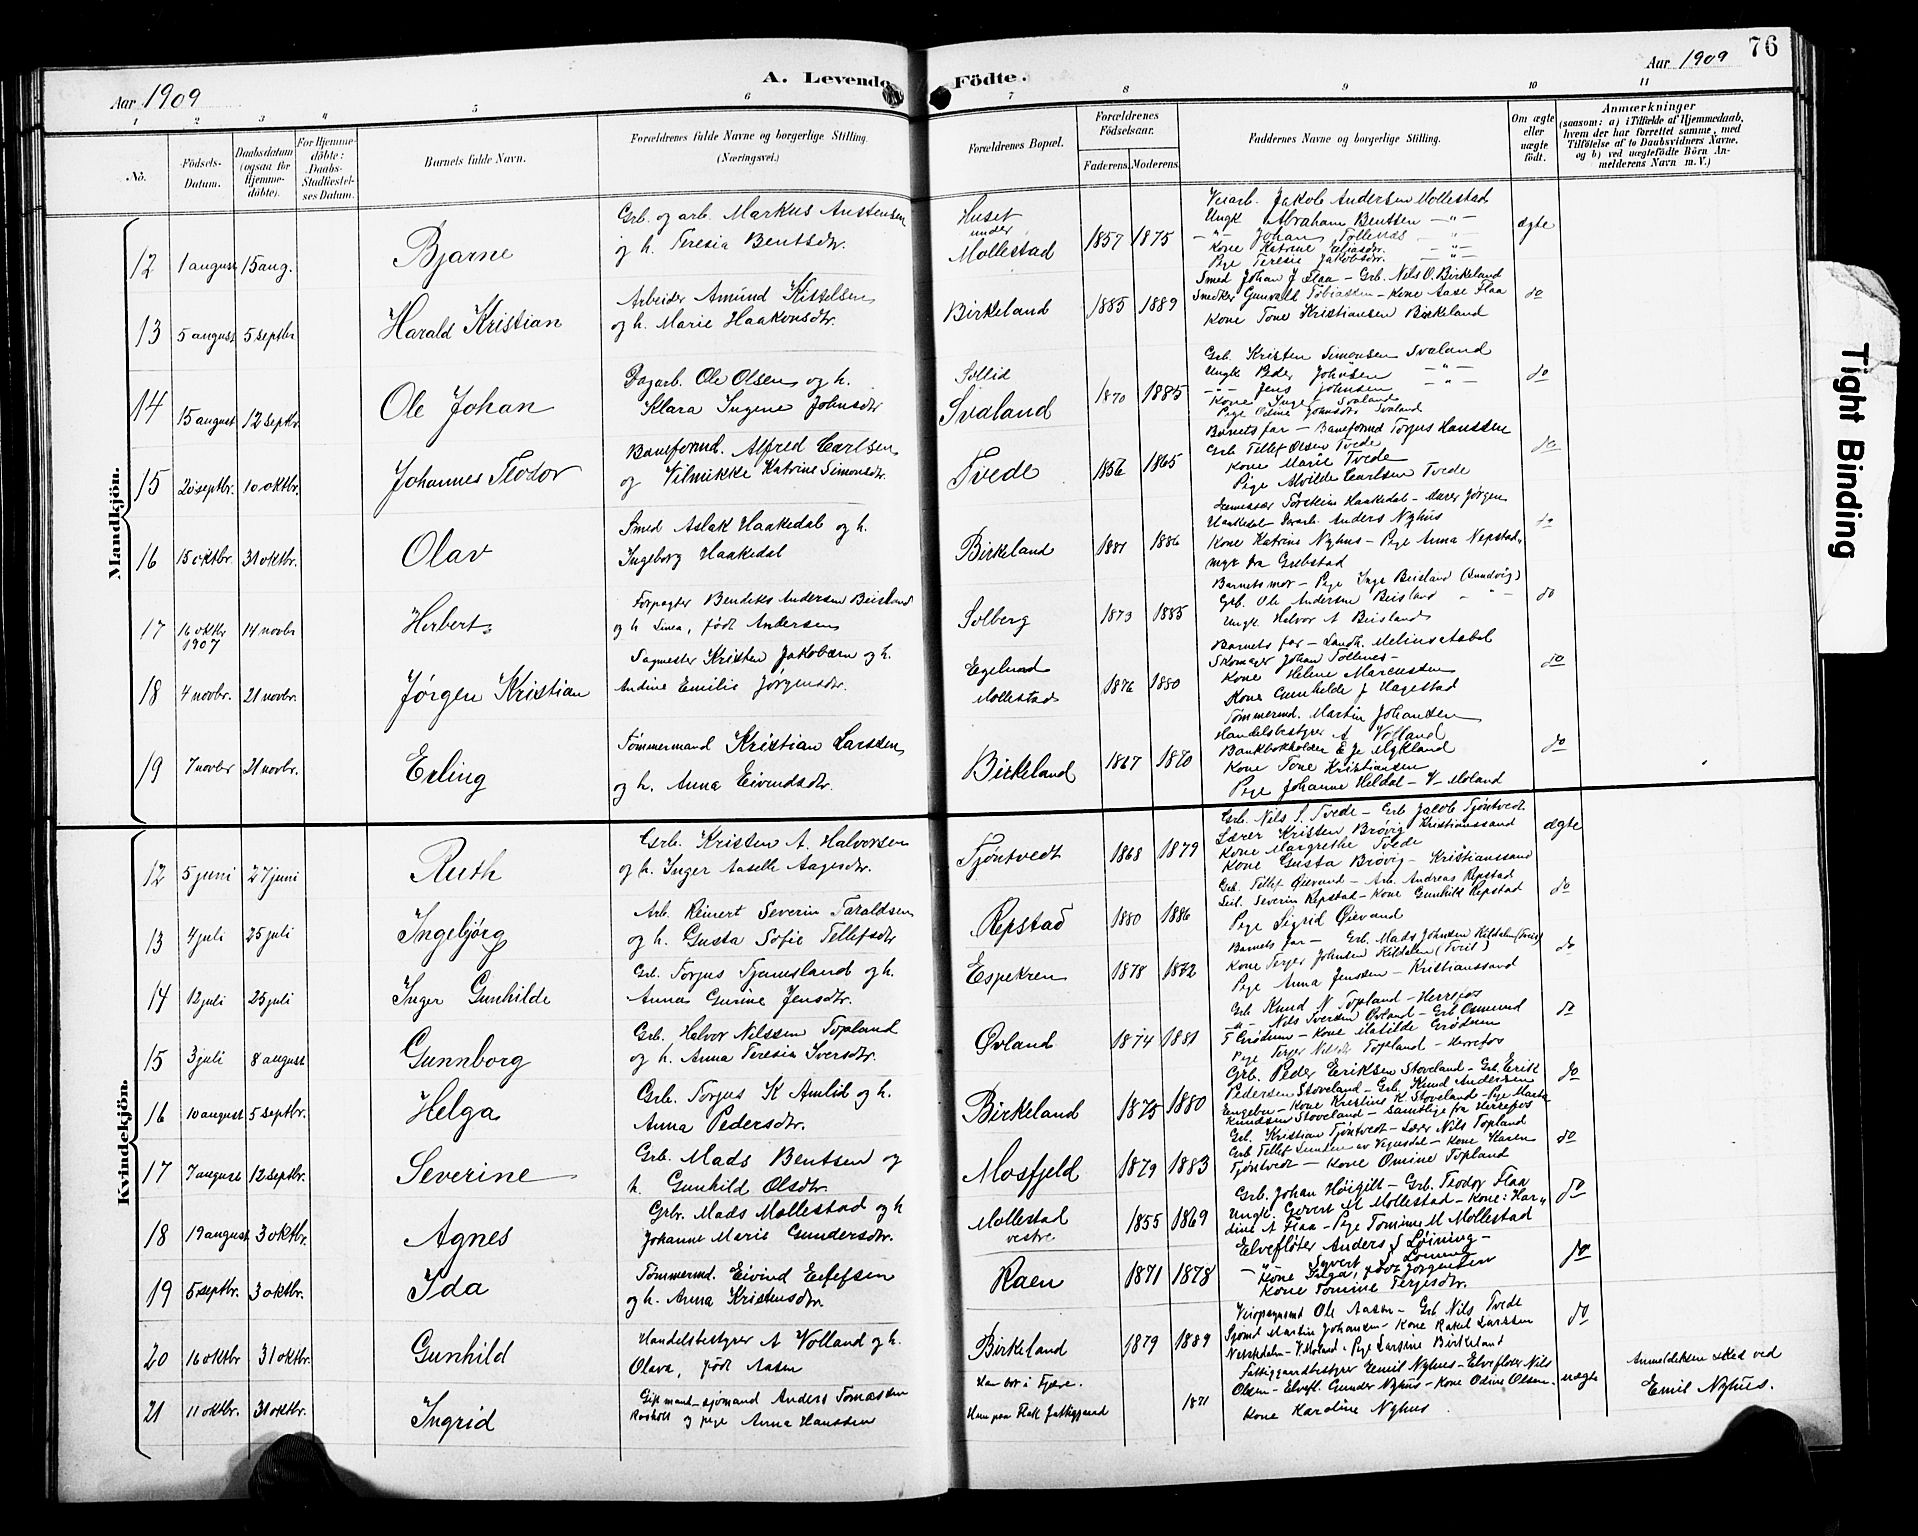 76
Aar 1909
A. Levende
Födte.
Aar 1909
1 2 3 4 5 6 7 8 9 10 11
No.
Födsels-Datum.
Daabsdatum (ogsaa for Hjemme-döbte).
For Hjemme-döbte: Daabs-Stadfæstel-ses Datum.
Barnets fulde Navn.
Forældrenes fulde Navne og borgerlige Stilling. (Næringsvei.)
Forældrenes Bopæl.
Forældrenes Födselsaar.
Faderens. Moderens.
Faddernes Navne og borgerlige Stilling.
Om ægte eller uægte födt.
Anmærkninger
(saasom: a) i Tilfælde af Hjemmedaab, hvem der har forrettet samme, med Tilföielse af to Daabsvidners Navne, og b) ved uægtefödte Börn An-melderens Navn m. V.)
Mandkjön.
12 1 august 15 aug. Bjarne
Grb. og arb. Markus Anstensen
og h. Teresia Bentsdtr.
Huset under Mollestad 1857 1875
Jakob Andersen Mollestad
Ungk Abraham Bentsen — " —
— " — Johan Tollenæs — " —
Kone Katrine Eliasdtr. — " —
Pige Teresie Jakobsdtr. — " —
ægte
13 5 august 5 septbr Harald Kristian
Arbeider Amund Kittelsen
og h. Marie Haakonsdtr.
Birkeland 1885 1889
Smed Johan J Flaa — Grb. Nils O. Birkeland
Snedker Gunvald Tobiassen — Kone Aase Flaa
Kone Tone Kristiansen Birkeland
do
14 15 august 12 septbr. Ole Johan
Dagarb. Ole Olsen og h.
Klara Ingene Johnsdtr
Sollid Svaland 1870 1885
Grb. Kristen Simonsen Svaland
Ungk Peder Johnsen — " —
— " — Jens Johnsen — " —
Kone Inge Svaland
Pige Odine Johnsdtr Svaland
do
15 20 septbr. 10 oktbr. Johannes Teodor
Baneformd. Alfred Carlsen
og Vilmikke Katrine Simonsdtr.
Tvede 1856 1865
Barnets far — Baneformd Torjus Hanssen
Grb Tellef Olsen Tvede
Kone Marie Tvede
Pige Alvilde Carlsen Tvede
do
16 15 oktbr. 31 oktbr. Olav
Smed Aslak Haakedal og h.
Ingeborg Haakedal
Birkeland 1881 1886
Torstein Haakedal — Lærer Jørgen
Haakedal — Anders Nyhus
Kone Katrine Nyhus — Pige Anna Nepstad,
do
17 16 oktbr 1907 14 novbr Herbert
Forpagter Bendiks Andersen Beisland
og h Sina, født Andersen
Solberg 1873 1885
Barnets mor — Pige Inge Beisland (Sundvig)
Grb. Ole Andersen Beisland " — " —
Ungk Halvor A Beisland
do
18 4 novbr. 21 novbr. Jørgen Kristian
Sagmester Kristen Jakobsen og h.
Andine Emilie Jørgensdtr.
Egelund Mollestad 1876 1880
Barnets far — Landh.
Skomager Johan Tollenes —
Kone Helene Marcussen
Kone Gunhilde J Hagestad
do
19 7 novbr 21 novbr. Erling
Tømmermand Kristian Larssen
og h. Anna Eivindsdtr.
Birkeland 1867 1870
Tømmermd. Martin Johansen
Handelsbestyrer A Volland
Bankbokholder E Je Mykland
Kone Tone Kristiansen
Pige Johanne Hildal — V— Moland
do
Kvindekjön.
12 5 juni 27 juni Ruth
Grb. Kristen A. Halvorsen
og h. Inger Aaselle Aagesdtr.
Tjöntvedt 1868 1879
Grb. Nils S. Tvede — Grb Jacob Tjöntvedt
Lærer Kristen Brøvig Kristianssand
Kone Margrethe Tvede
Kone Gusta Brøvig — Kristianssand
ægte
13 4 juli 25 juli Ingebjørg
Arb. Reinert Severin Taraldsen
og h. Gusta Sofie Tellefsdtr
Repstad 1880 1886
Grb Tellef Øievand — Arb. Andreas Repstad
Severin Repstad — Kone Gunhild Repstad
Pige Sigrid Øievand
do
14 12 juli 25 juli Inger Gunhilde
Grb. Torjus Tjomsland og h.
Anna Gurine Jensdtr.
Espekren 1878 1872
Barnets far — Grb. Mads Johnsen Kildalen (Tveit)
Kone Terjer Johnsen Kildalen (Tveit)
Pige Anna Jenssen — Kristianssand
do
15 3 juli 8 august Gunnborg
Grb. Halvor Nilssen Topland
og h. Anna Teresia Iversdtr.
Øvland 1874 1881
Grb Knud N Topland — Herrefos
— " — Nils Iversen Øvland — Grb Osmund
T Grødum — Kone Matilde Grødum
Pige Terjer Nilsdtr Topland — Herrefos
do
16 10 august 5 septbr. Helga
Grb. Torjus K Amlid og h.
Anna Pedersdtr.
Birkeland 1875 1880
Grb. Peder Eriksen Stoveland — Grb. Erik
Pedersen Stoveland — Grb. Knud Andersen
Engebu — Kone Kristine K Stoveland — Pige Marta
Knudsen Stoveland — samtlige fra Herrefos
do
17 7 august 12 septbr. Severine
Grb. Mads Bentsen og
h. Gunhild Olsdtr.
Mosfjeld 1879 1883
Grb. Kristian Tjöntvedt — Lærer Nils Topland
Grb Tellef Lunden av Vegusdal — Kone Karen
Tjöntvedt — Kone Omine Topland
do
18 19 august 3 oktbr. Agnes
Grbr. Mads Mollestad og h
Johanne Marie Gundersdtr.
Mollestad vestre 1855 1869
Grb. Johan Höigilt — Grb. Teodor Flaa
Ungk. Gevert M Mollestad — Kone: Har„
dine A Flaa — Pige Tomine M Mollestad
do
19 5 septbr. 3 oktbr. Ida
Tømmermd. Eivind Eilefsen
og h. Anna Kristensdtr.
Raen 1871 1878
Elvefløter Anders S Løining —
— " — Syvert S Løining
Kone Inga, født Jørgensen
Kone Tomine Terjesdtr.
do
20 16 oktbr 31 oktbr. Gunhild
Handelsbestyrer A Volland og h.
Olava, født Aasen
Birkeland 1879 1889
Ole Aasen — Grb Nils Tvede
Sjömd Martin Johansen — Kone Rakel Larssen
V Moland. Pige Larsine Birkeland
do
21 11 oktbr. 31 oktbr. Ingrid
Gift mand — sjömand Anders Tomassen
Rosholt og pige Anna Hanssen
Han bor i Fjære.
Hun paa Flak fattiggaard 1871
Fattiggaardbestyrer Emil Nyhus — Elvefløter Nils
Olsen — Elvefl. Gunder Nyhus — Kone Odine Olsen.
Kone Karoline Nyhus
uægte
Anmeldelsen sked ved
Emil Nyhus.
Tight Binding